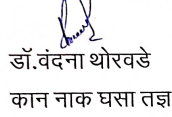 डॉ.वंदना थोरवडे
कान नाक घसा तज्ञ